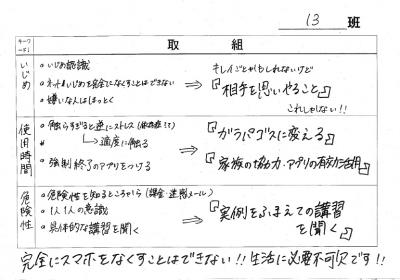 13 班
キーワード
取 組
いじめ
・いじめ認識
・ネットいじめを完全になくすことはできない
・嫌いな人はほっとく
⇒
キレイごとかもしれないけど
『相手を思いやること』
これしかない!!
使用時間
・触らなすぎると逆にストレス
↳ 適度に触る
・強制終了のアプリをつける
⇒
『ガラパゴスに変える』
『家族の協力・アプリの有効活用』
危険性
・危険性を知るところから(課金・迷惑メール)
・1人1人の意識
・具体的な講習を聞く
⇒
『実例をふまえての講習
を聞く』
完全にスマホをなくすことはできない!!生活に必要不可欠です!!